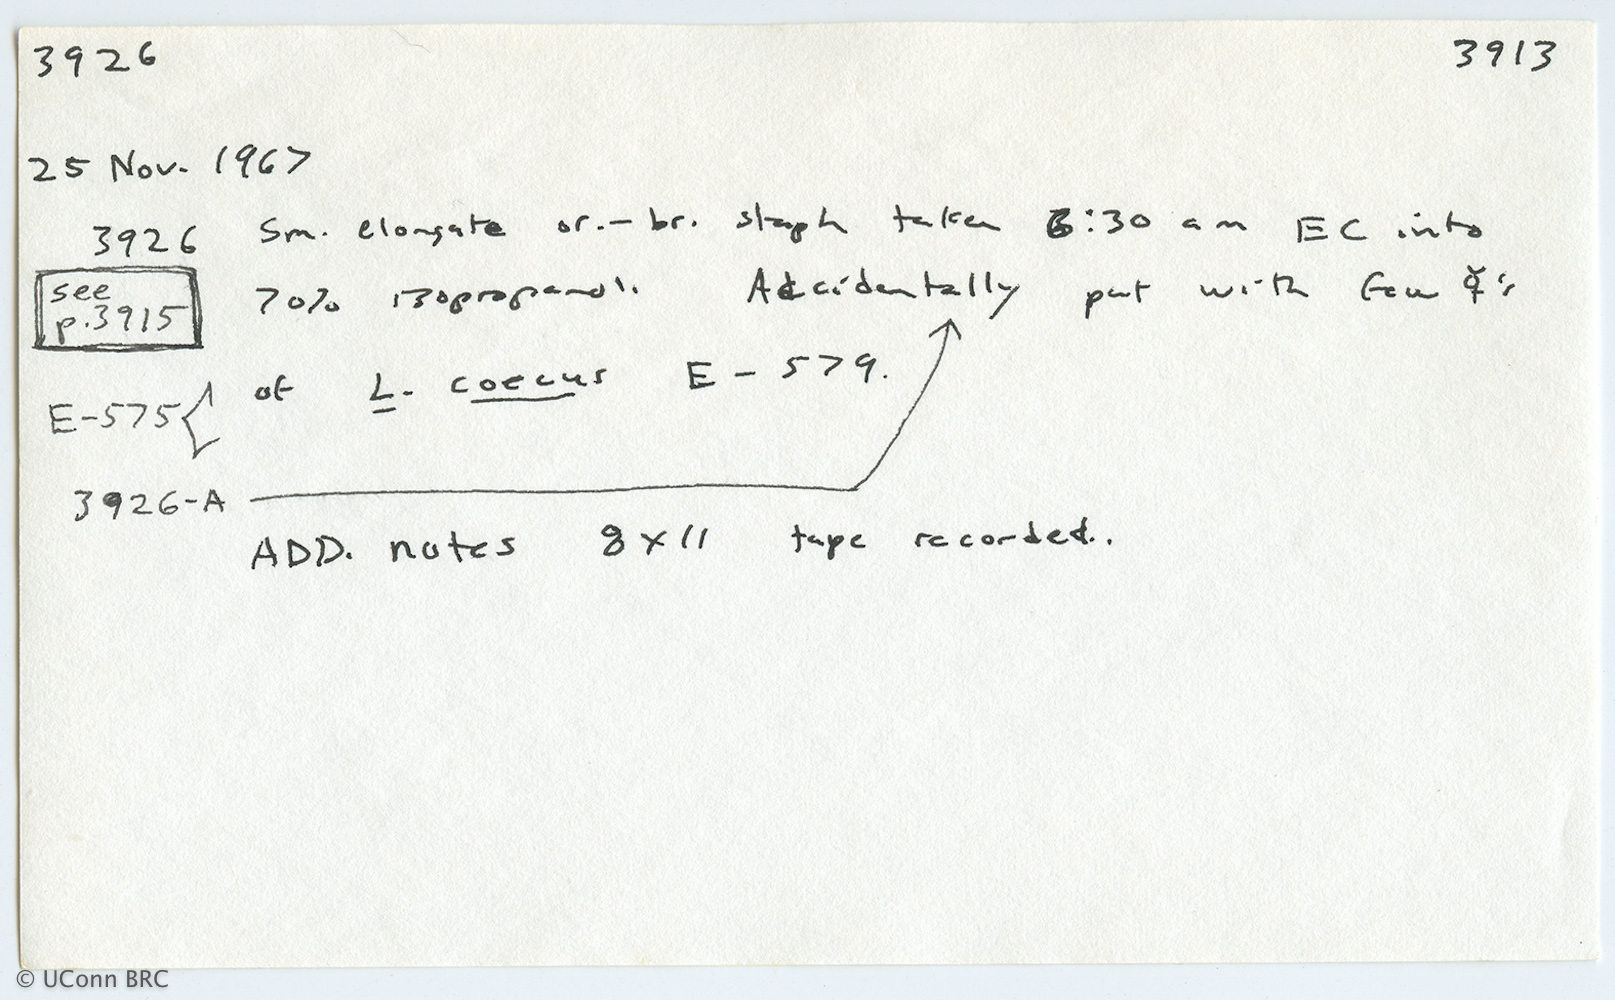 3926 3913
25 Nov. 1967
3926 Sm. elongate or.-br. staph taken 6:30 am EC into
see
p.3915
70% isopropanol. Accidentally put with few ☿'s
E-575 { of L. coecus E-579.
3926-A
ADD. notes 8x11 tape recorded.
© UConn BRC